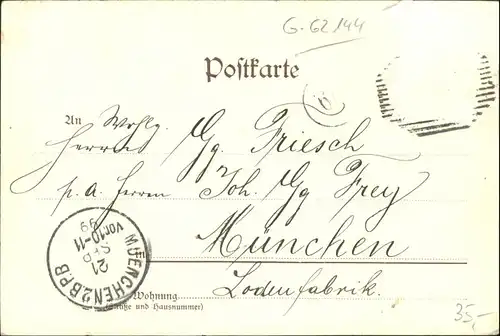 G-62144
Postkarte
An Wohlg.
Herrn Gg. Friesch
p. a. Herren Joh. Gg Frey
München
in
Lodenfabrik.
Wohnung
(Straße und Hausnummer)
MUENCHEN 2 B.P.B
21
SEP
vor 10-11
99
35,-